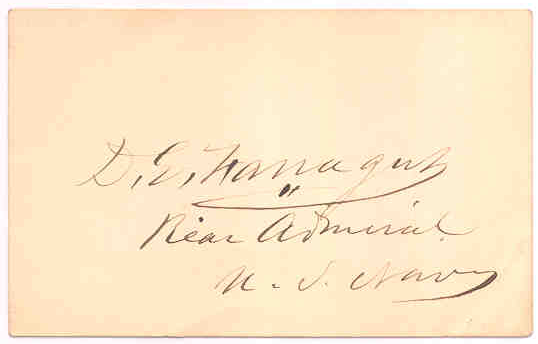 D. G. Farragut
Rear Admiral
U. S. Navy